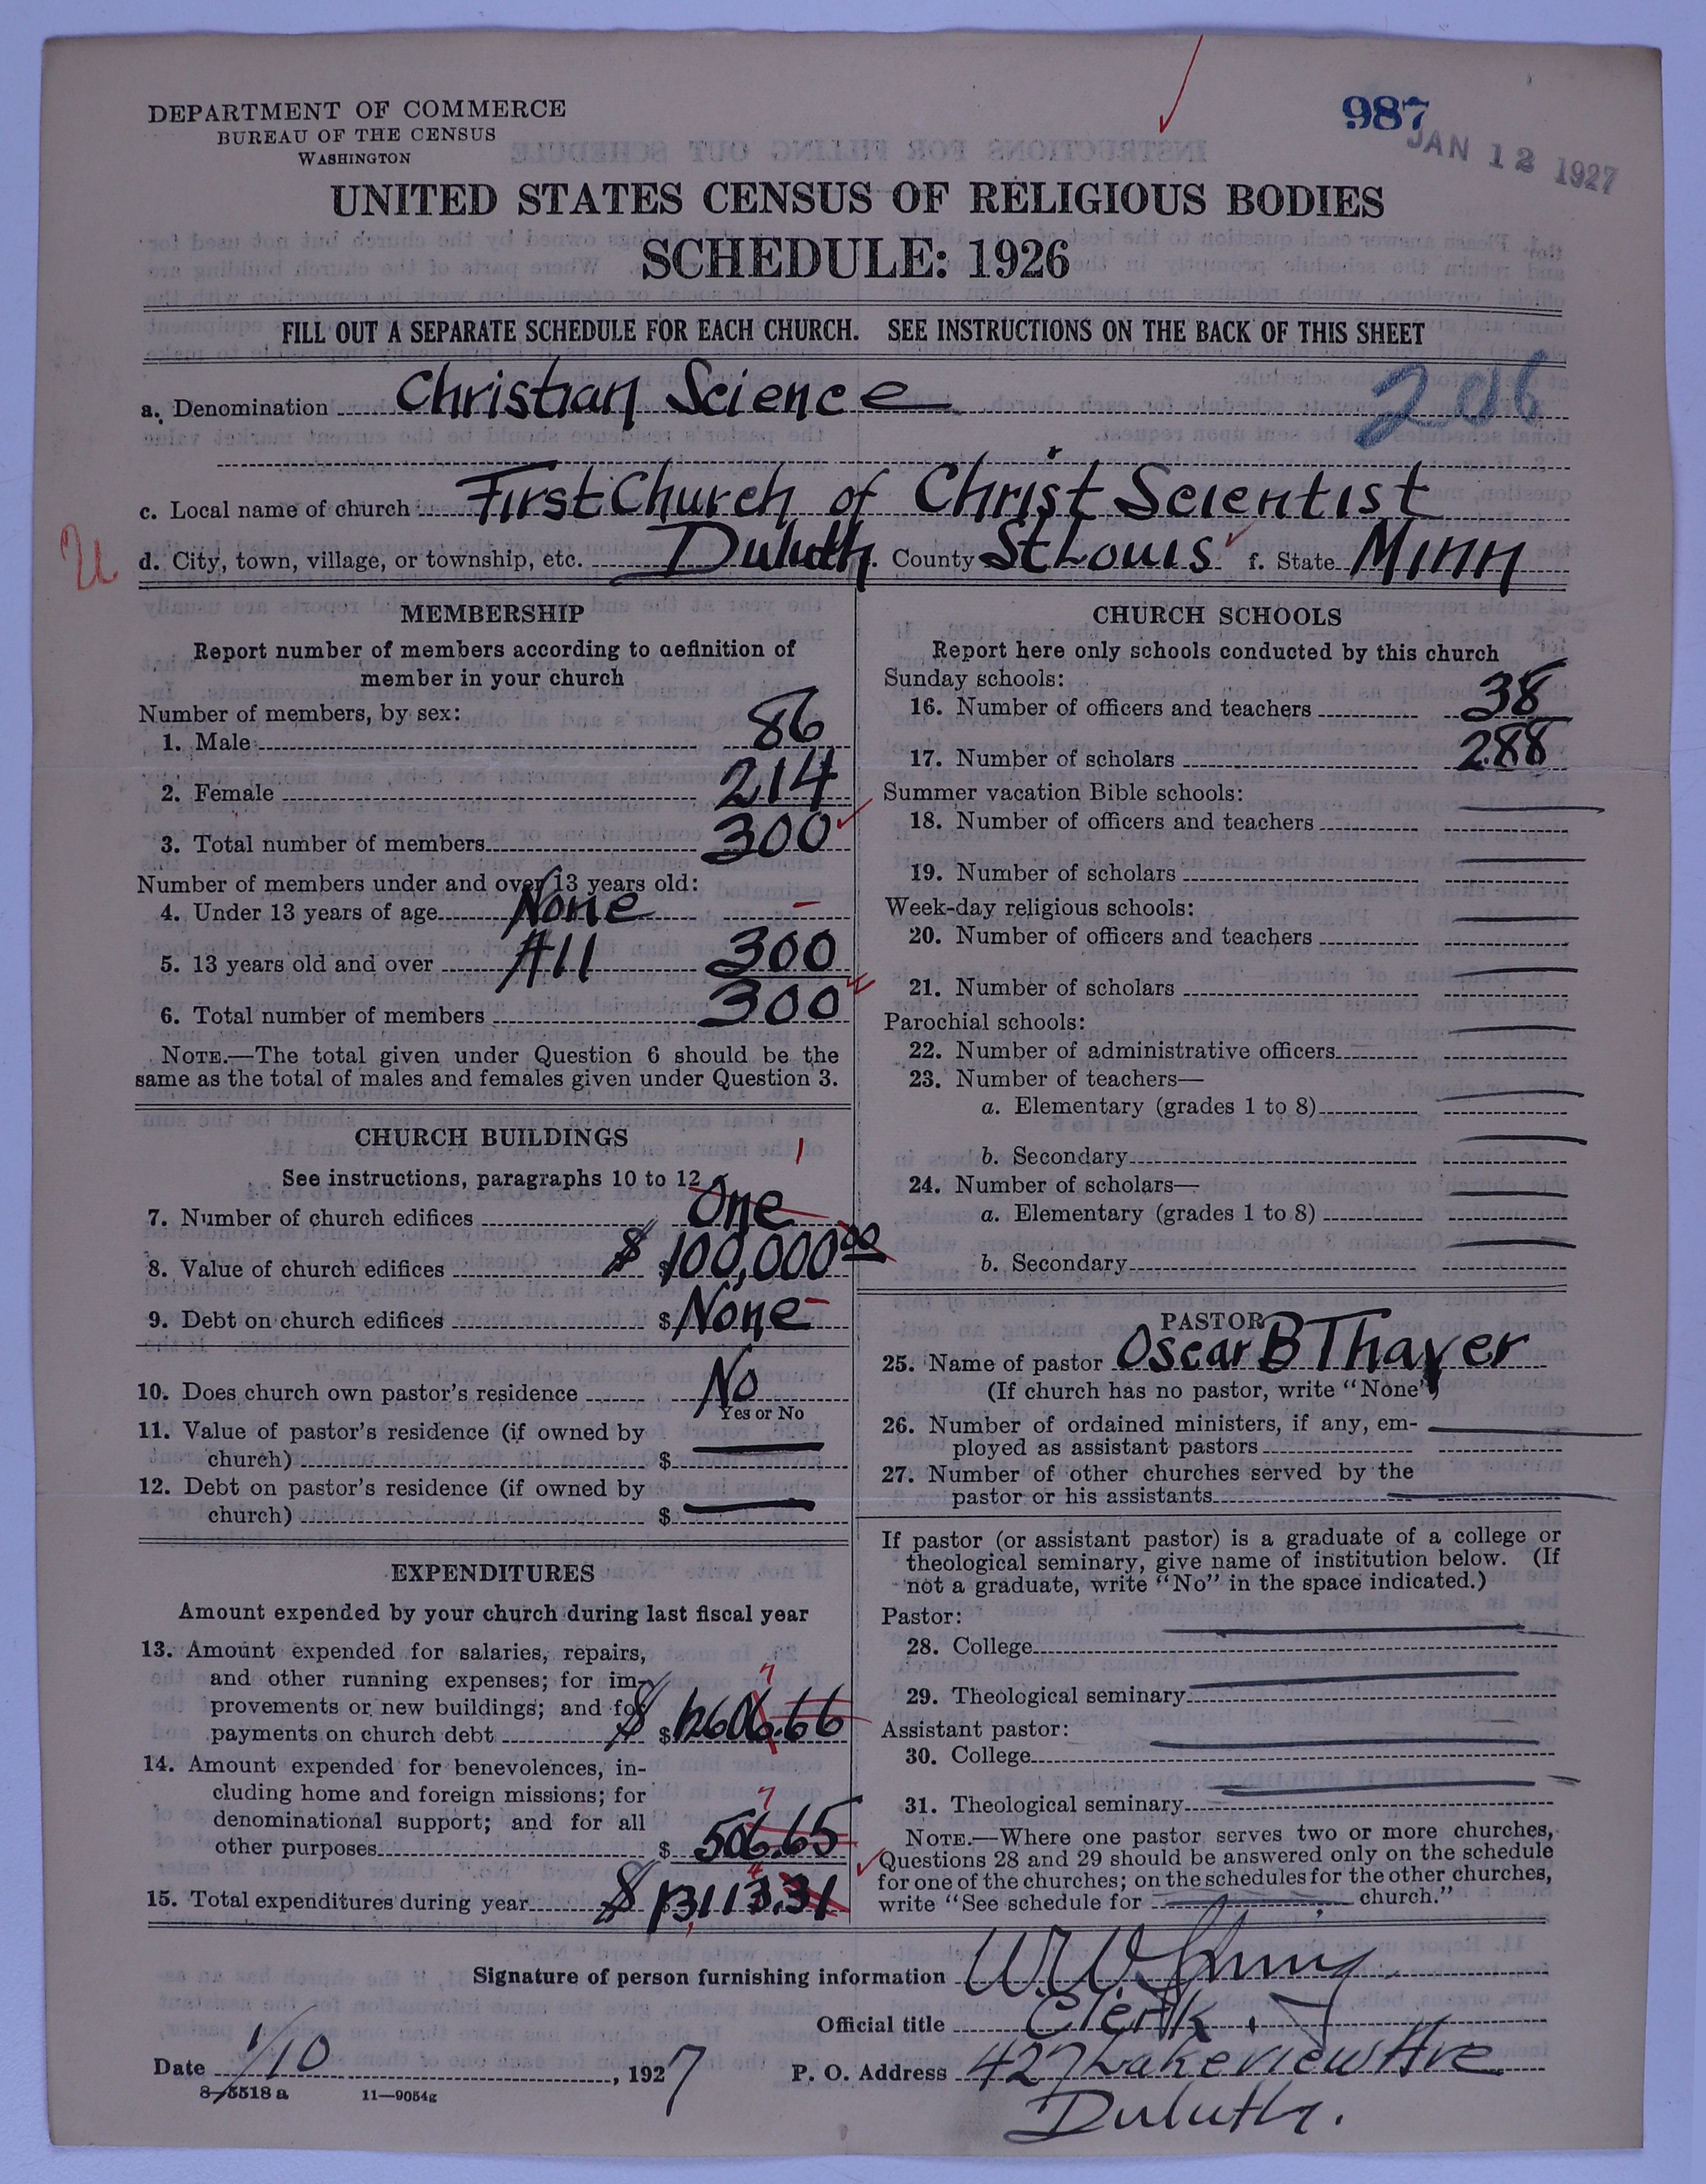 DEPARTMENT OF COMMERCE
BUREAU OF THE CENSUS
WASHINGTON
987
JAN 12 1927
UNITED STATES CENSUS OF RELIGIOUS BODIES
SCHEDULE: 1926
FILL OUT A SEPARATE SCHEDULE FOR EACH CHURCH. SEE INSTRUCTIONS ON THE BACK OF THIS SHEET
a. Denomination Christian Science 206
c. Local name of church First Church of Christ Scientist
U
d. City, town, village, or township, etc. Duluth. County St Louis f. State Minn
MEMBERSHIP
Report number of members according to definition of
member in your church
Number of members, by sex:
1. Male 86
2. Female 214
3. Total number of members 300
Number of members under and over 13 years old:
4. Under 13 years of age None –
5. 13 years old and over All 300
6. Total number of members 300
NOTE.—The total given under Question 6 should be the
same as the total of males and females given under Question 3.
CHURCH BUILDINGS
See instructions, paragraphs 10 to 12
1
7. Number of church edifices One
8. Value of church edifices $ $100,000 00
9. Debt on church edifices $ None
10. Does church own pastor's residence No
Yes or No
11. Value of pastor's residence (if owned by
church) $
12. Debt on pastor's residence (if owned by
church) $
EXPENDITURES
Amount expended by your church during last fiscal year
13. Amount expended for salaries, repairs,
and other running expenses; for im-
provements or new buildings; and for
7
payments on church debt $ $12606.66
14. Amount expended for benevolences, in-
cluding home and foreign missions; for
denominational support; and for all
7
other purposes $ 506.65
4
15. Total expenditures during year $ $13113.31
CHURCH SCHOOLS
Report here only schools conducted by this church
Sunday schools:
16. Number of officers and teachers 38
17. Number of scholars 288
Summer vacation Bible schools:
18. Number of officers and teachers
19. Number of scholars
Week-day religious schools:
20. Number of officers and teachers
21. Number of scholars
Parochial schools:
22. Number of administrative officers
23. Number of teachers—
a. Elementary (grades 1 to 8)
b. Secondary
24. Number of scholars—
a. Elementary (grades 1 to 8)
b. Secondary
PASTOR
25. Name of pastor Oscar B Thayer
(If church has no pastor, write "None")
26. Number of ordained ministers, if any, em-
ployed as assistant pastors
27. Number of other churches served by the
pastor or his assistants
If pastor (or assistant pastor) is a graduate of a college or
theological seminary, give name of institution below. (If
not a graduate, write "No" in the space indicated.)
Pastor:
28. College
29. Theological seminary
Assistant pastor:
30. College
31. Theological seminary
NOTE.—Where one pastor serves two or more churches,
Questions 28 and 29 should be answered only on the schedule
for one of the churches; on the schedules for the other churches,
write "See schedule for church."
Signature of person furnishing information W. W.
Official title Clerk.
Date 1/10, 1927 P. O. Address 427 Lakeview Ave
8-5518 a 11—9054g
Duluth.